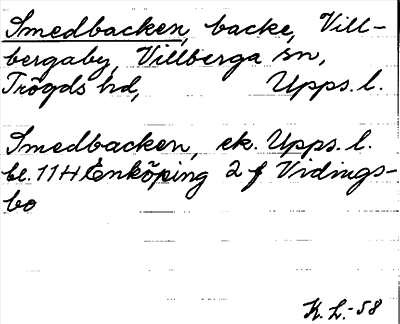 Smedbacken, backe, Vill-
bergaby, Villberga sn,
Trögds hd, Upps. l.
Smedbacken, ek. Upps. l.
bl. 11H Enköping 2 f Vidings-
bo
K. L. -58